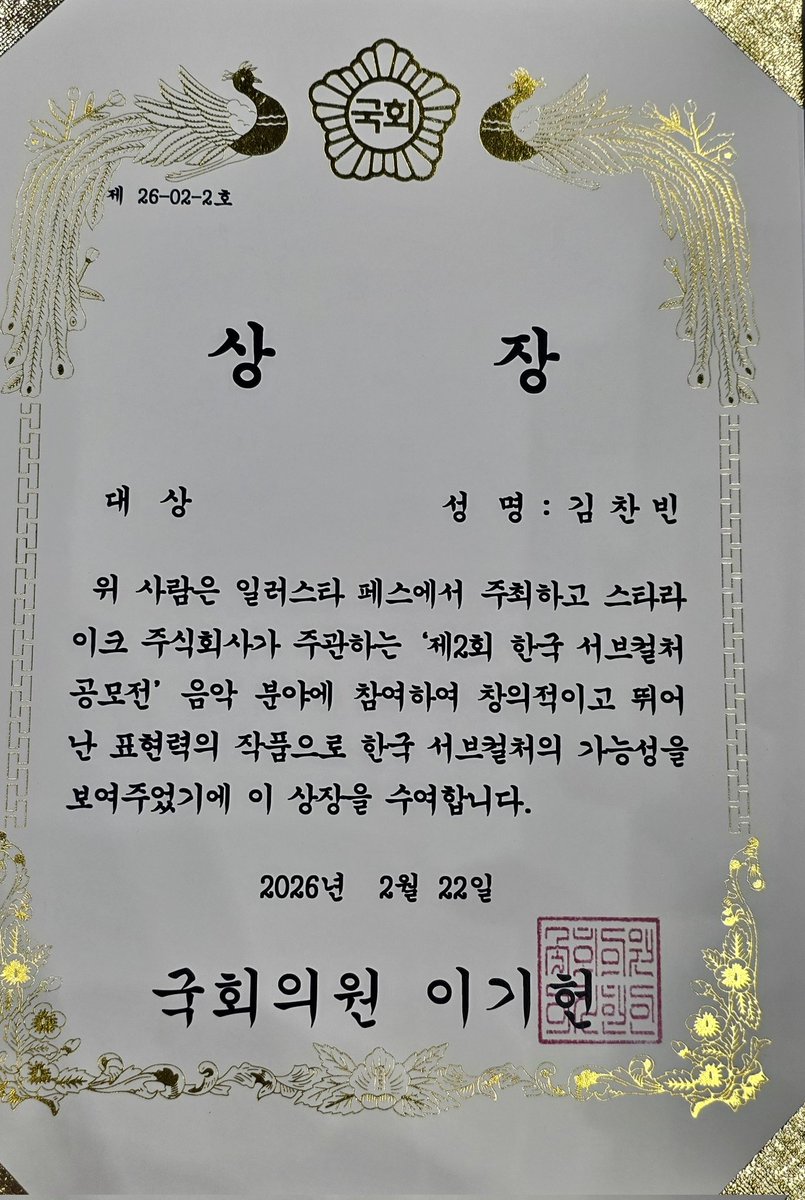 국회
제 26-02-2호
상 장
대 상 성 명 : 김 찬 빈
위 사람은 일러스타 페스에서 주최하고 스타라
이크 주식회사가 주관하는 '제2회 한국 서브컬처
공모전' 음악 분야에 참여하여 창의적이고 뛰어
난 표현력의 작품으로 한국 서브컬처의 가능성을
보여주었기에 이 상장을 수여합니다.
2026년 2월 22일
국회의원 이기헌